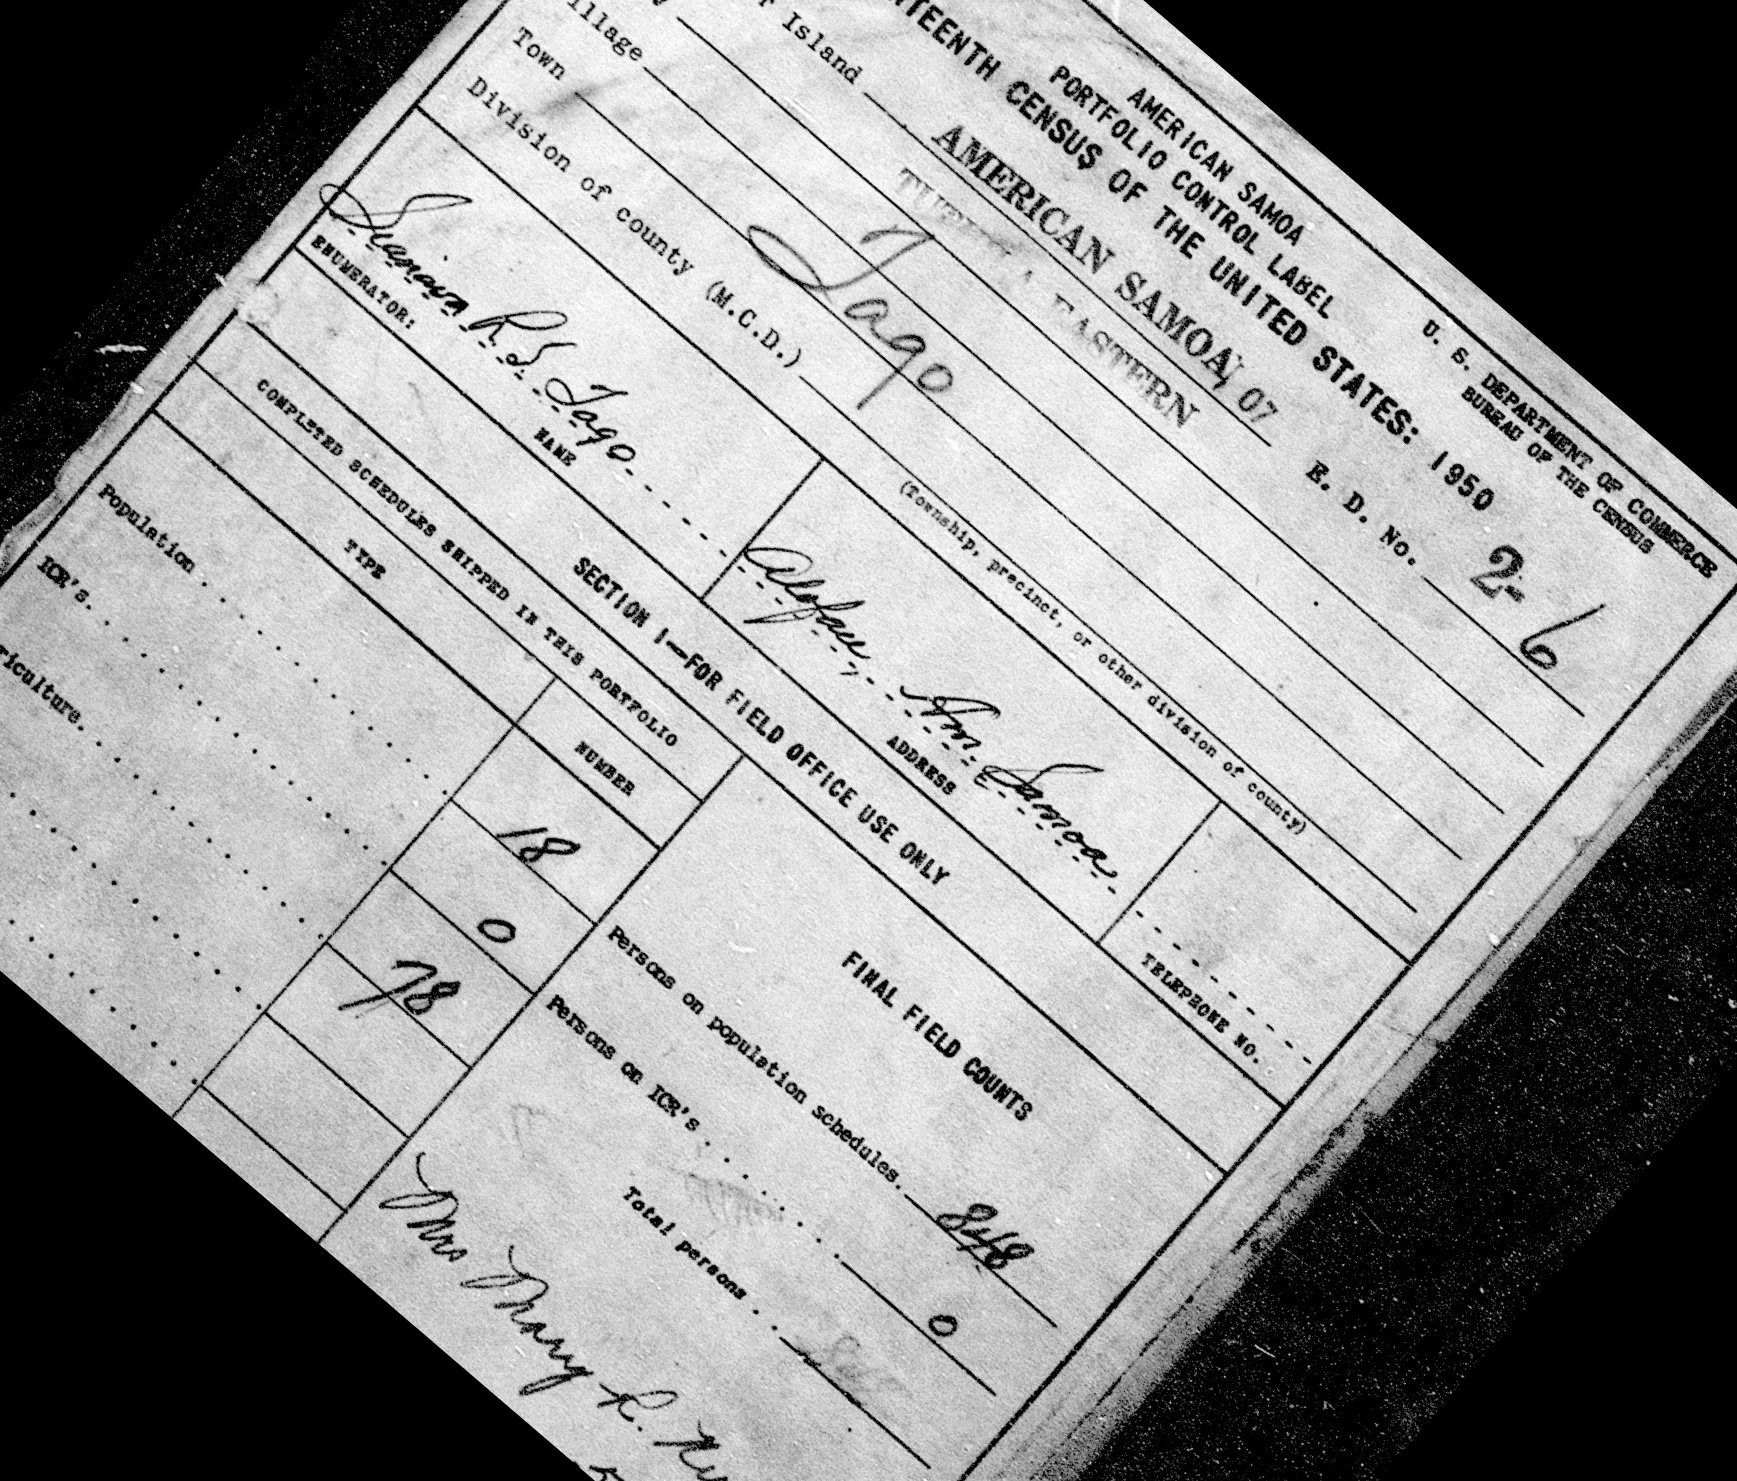 U. S. DEPARTMENT OF COMMERCE
BUREAU OF THE CENSUS
AMERICAN SAMOA
PORTFOLIO CONTROL LABEL
TEENTH CENSUS OF THE UNITED STATES: 1950
E. D. No. 2-6
Island AMERICAN SAMOA, 07
EASTERN
Village
Town
Division of county (M.C.D.)
(Township, precinct, or other division of county)
R. S. Tago Alofau, Am. Samoa
ENUMERATOR: NAME ADDRESS TELEPHONE NO.
SECTION 1—FOR FIELD OFFICE USE ONLY
COMPLETED SCHEDULES SHIPPED IN THIS PORTFOLIO
TYPE NUMBER
Population 18
ICR's. 0
riculture. 78
FINAL FIELD COUNTS
Persons on population schedules. 848
Persons on ICR's 0
Total persons 848
Mrs Mary R.